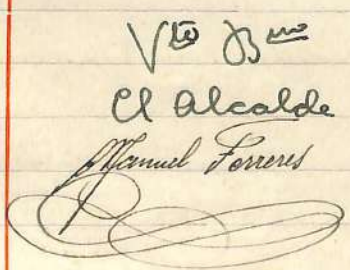 Vto Bno
El Alcalde
Manuel Ferreres